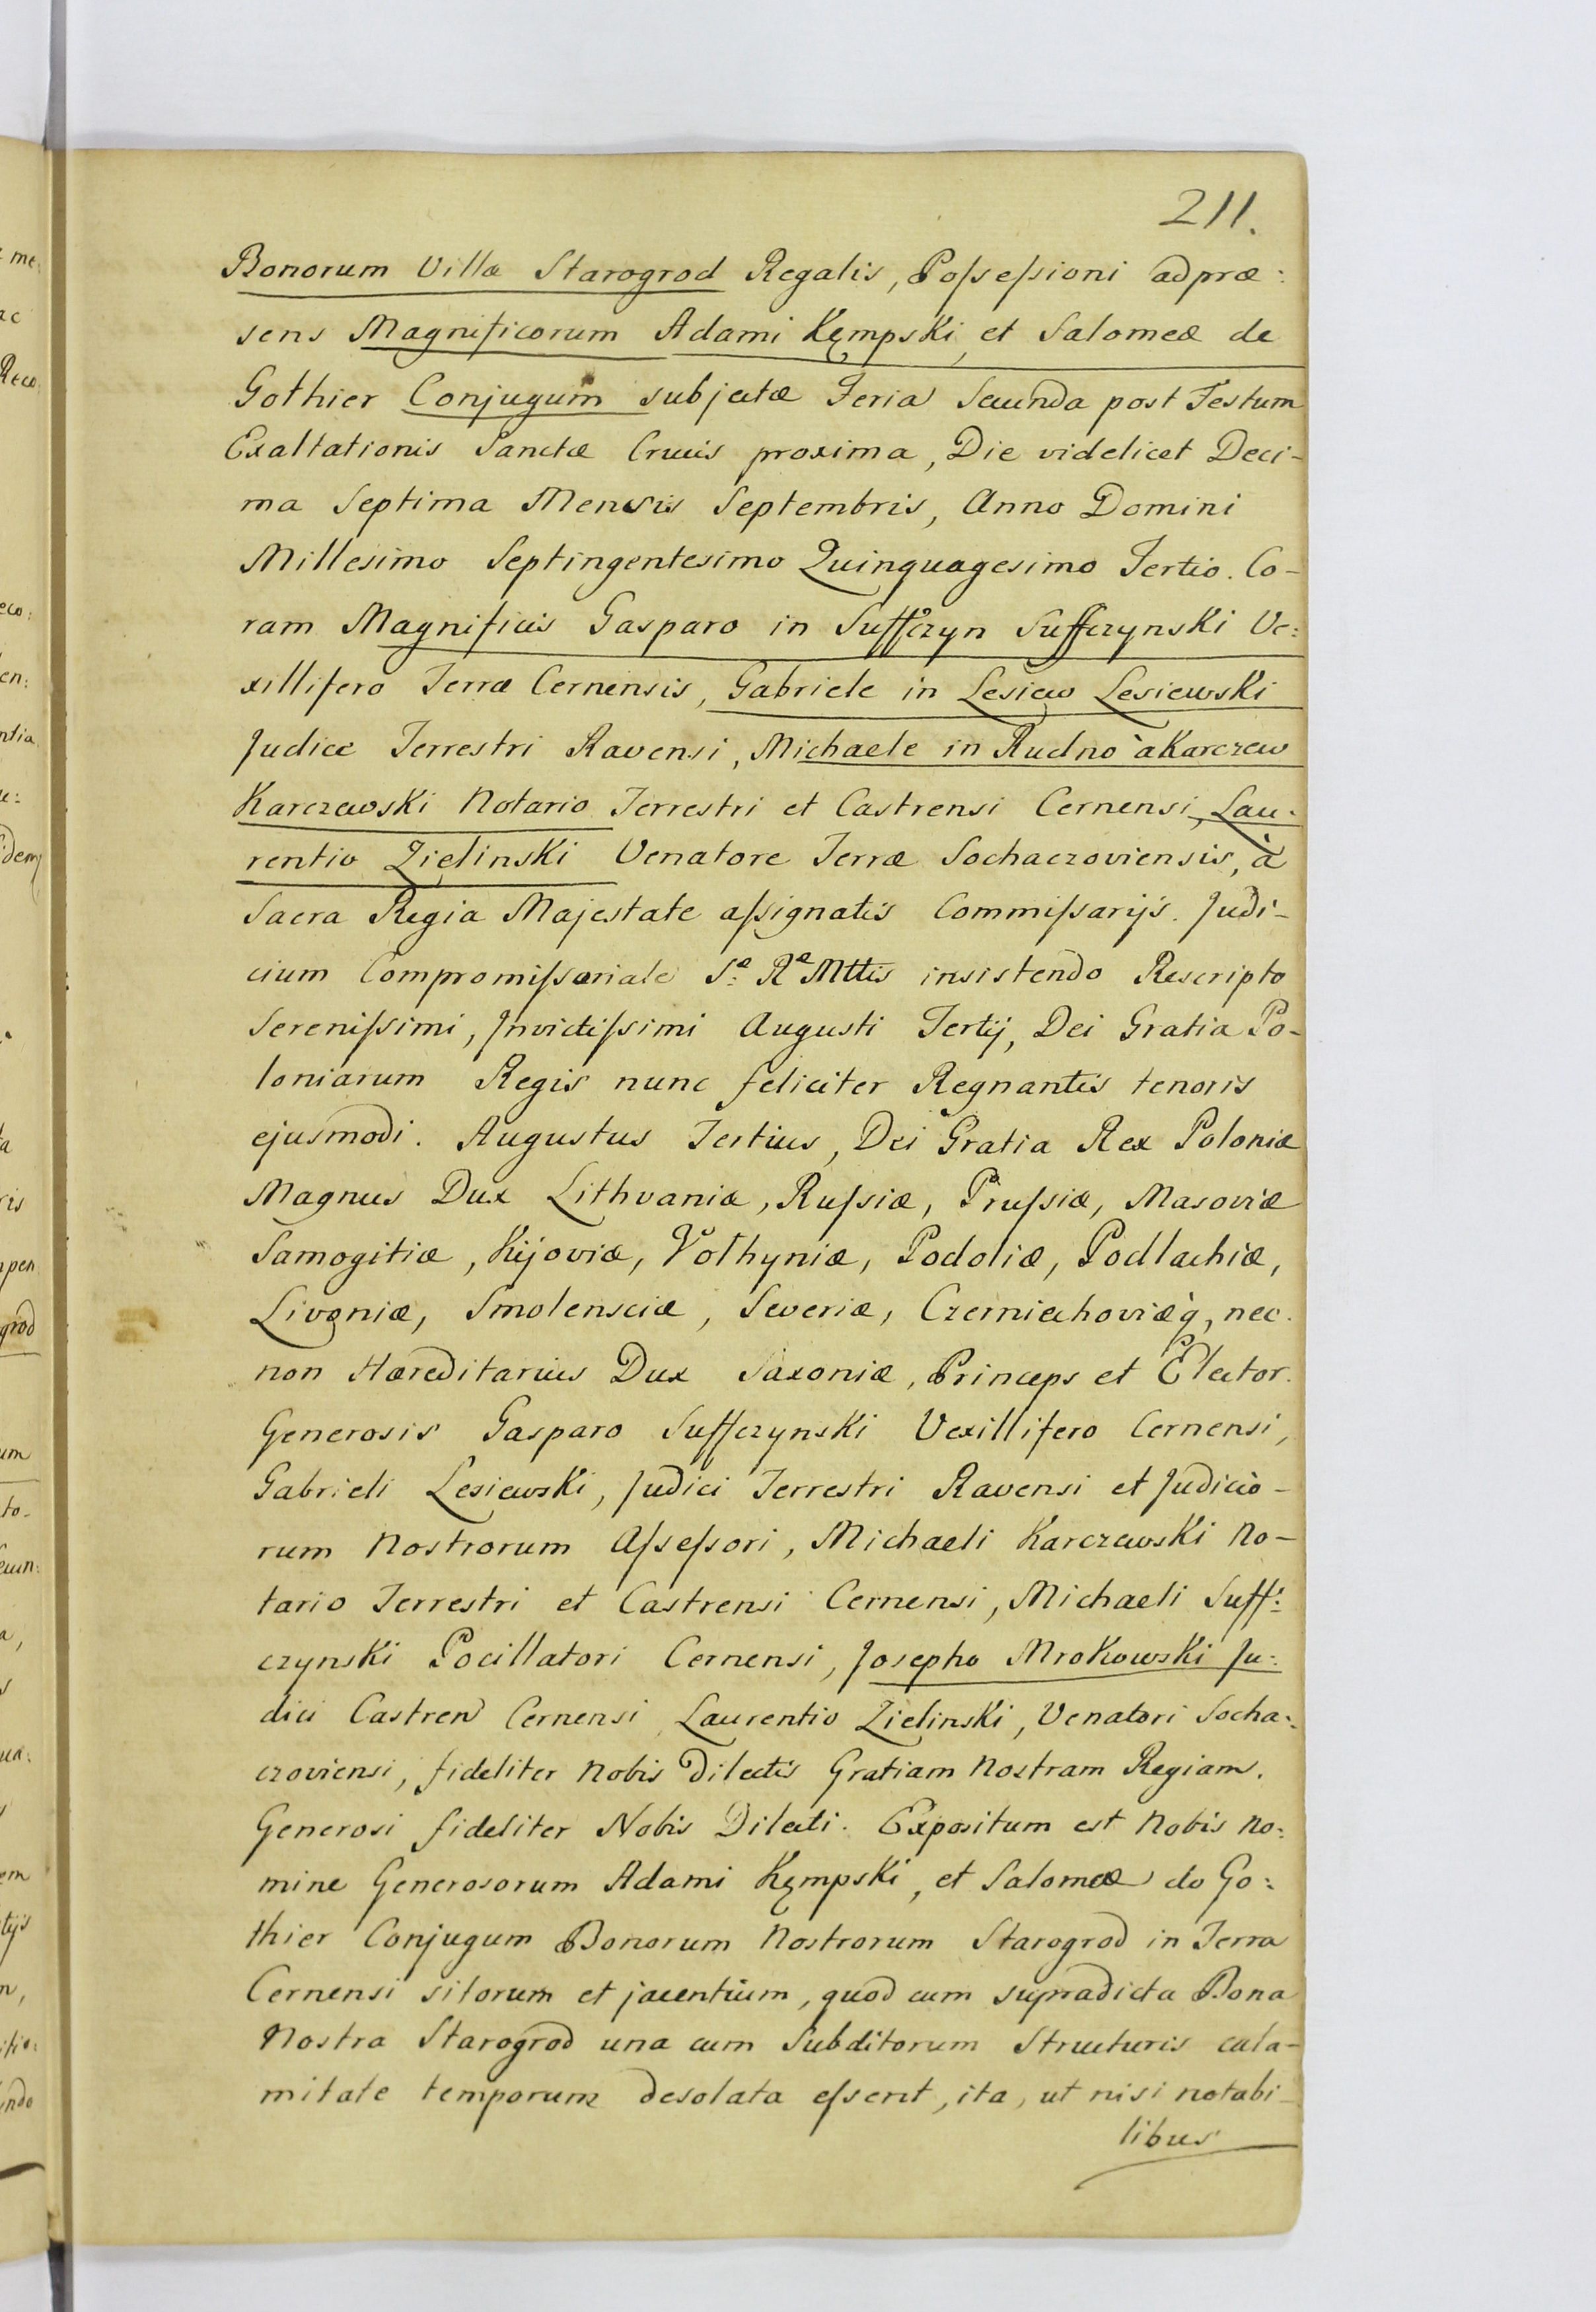 211.
Bonorum Villæ Starogrod Regalis, Poſseſsioni ad præ:
sens Magnificorum Adami Kępski, et Salomeæ de
Gothier Conjugum subjectæ Feria Secunda post Festum
Exaltationis Sanctæ Crucis proxima, Die videlicet Deci-
ma Septima Mensis Septembris, Anno Domini
Millesimo Septingentesimo Quinquagesimo Tertio. Co-
ram Magnificis Gasparo in Suffczyn Suffczynski Ve:
xillifero Terræ Cernensis, Gabriele in Lesiew Lesiewski
Judice Terrestri Ravensi, Michaele in Rudno à Karczew
Karczewski Notario Terrestri et Castrensi Cernensi, Lau:
rentio Zielinski Venatore Terræ Sochaczoviensis, à
Sacra Regia Majestate aſsignatis Commiſsarijs. Judi-
cium Compromiſsoriale S:æ Ræ Mttis insistendo Rescripto
Sereniſsimi, Jnvictiſsimi Augusti Tertij, Dei Gratia Po-
loniarum Regis nunc feliciter Regnantis tenoris
ejusmodi. Augustus Tertius, Dei Gratia Rex Poloniæ
Magnus Dux Lithvaniæ, Ruſsiæ, Pruſsiæ, Masoviæ
Samogitiæ, Kijoviæ, Volhyniæ, Podoliæ, Podlachiæ,
Livoniæ, Smolensciæ, Severiæ, Czerniechoviæq, nec.
non Hæreditarius Dux Saxoniæ, Princeps et Elector.
Generosis Gasparo Suffczynski Vexillifero Cernensi,
Gabrieli Lesiewski, Judici Terrestri Ravensi et Judicio-
rum Nostrorum Aſseſsori, Michaeli Karczewski No-
tario Terrestri et Castrensi Cernensi, Michaeli Suff:
czynski Pocillatori Cernensi, Josepho Mrokowski Ju:
dici Castren Cernensi Laurentio Zielinski, Venatori Socha:
czoviensi, fideliter Nobis Dilectis Gratiam Nostram Regiam.
Generosi fideliter Nobis Dilecti. Expositum est Nobis No:
mine Generosorum Adami Kęmpski, et Salomeæ de Go:
thier Conjugum Bonorum Nostrorum Starogrod in Terra
Cernensi sitorum et jacentium, quod cum supradicta Bona
Nostra Starogrod una cum Subditorum Structuris cala-
mitate temporum desolata eſsent, ita, ut nisi notabi-
libus